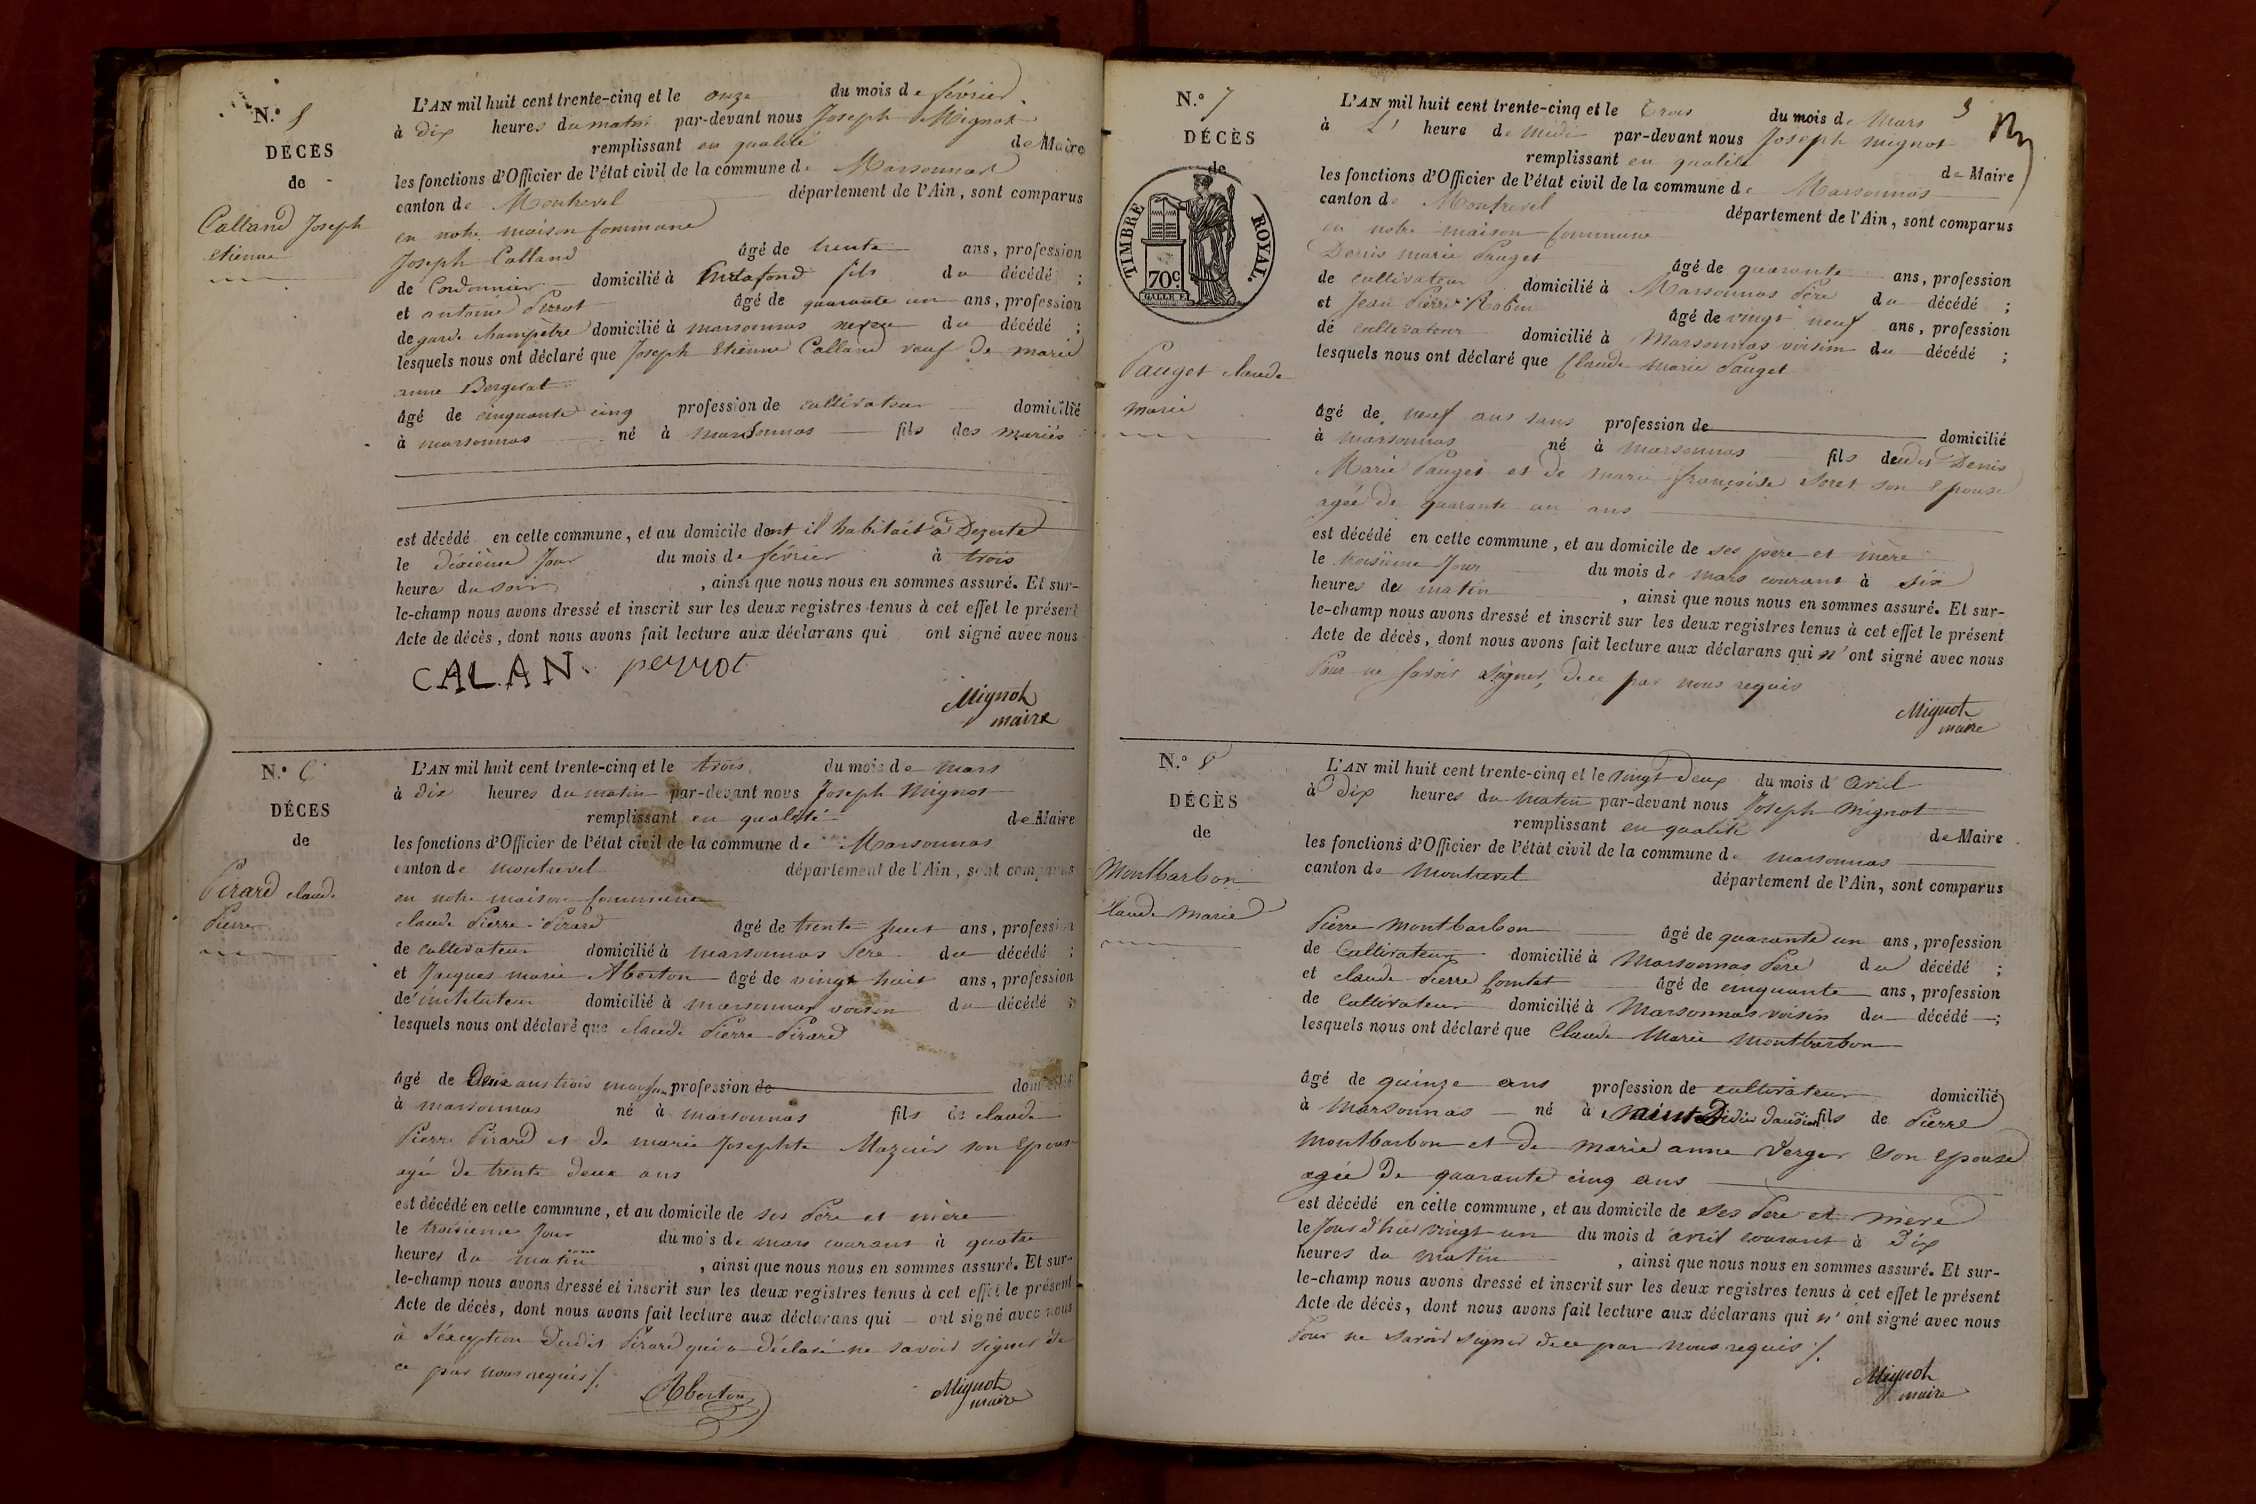 N.° 5
DÉCÈS
de
Calland Joseph
etienne
L'AN mil huit cent trente-cinq et le onze du mois de février
à dix heures du matin par-devant nous Joseph Mignot
remplissant en qualité de Maire
les fonctions d'Officier de l'état civil de la commune de Marsonnas
canton de Montrevel département de l'Ain, sont comparus
en notre maison commune
Joseph Calland âgé de trente ans, profession
de Cordonnier domicilié à fils du décédé ;
et antoine Perrot âgé de quarante un ans, profession
de garde champêtre domicilié à marsonnas neveu du décédé ;
lesquels nous ont déclaré que Joseph Etienne Calland veuf de marie
anne Bergerat
âgé de cinquante cinq profession de cultivateur domicilié
à marsonnas né à marsonnas fils des mariés
est décédé en cette commune, et au domicile dont il habitait à Dezerte
le dixième Jour du mois de février à trois
heures du soir, ainsi que nous nous en sommes assuré. Et sur-
le-champ nous avons dressé et inscrit sur les deux registres tenus à cet effet le présent
Acte de décès, dont nous avons fait lecture aux déclarans qui ont signé avec nous
CALAN. perrot
Mignot
maire
N.° 6
DÉCÈS
de
Pirard claude
Pierre
L'AN mil huit cent trente-cinq et le trois du mois de mars
à dix heures du matin par-devant nous Joseph Mignot
remplissant en qualité de Maire
les fonctions d'Officier de l'état civil de la commune de Marsonnas
canton de montrevel département de l'Ain, sont comparus
en notre maison commune
claude Pierre Pirard âgé de trente huit ans, profession
de cultivateur domicilié à marsonnas Père du décédé ;
et Jacques marie Aberton âgé de vingt huit ans, profession
de instituteur domicilié à marsonnas voisin du décédé ;
lesquels nous ont déclaré que claude Pierre Pirard
âgé de Deux ans trois mois sans profession de domicilié
à marsonnas né à marsonnas fils de claude
Pierre Pirard et de marie Josephte Mazuir son Epouse
agée de trente deux ans
est décédé en cette commune, et au domicile de ses Père et mère
le troisieme Jour du mois de mars courant à quatre
heures du matin, ainsi que nous nous en sommes assuré. Et sur-
le-champ nous avons dressé et inscrit sur les deux registres tenus à cet effet le présent
Acte de décès, dont nous avons fait lecture aux déclarans qui ont signé avec nous
à l'exception dudit Pirard qui a déclaré ne savoir signer de
ce par nous requis /.
Aberton
Mignot
maire
3
N.° 7
DÉCÈS
de
TIMBRE ROYAL.
70c.
Pauget claude
marie
L'AN mil huit cent trente-cinq et le Trois du mois de Mars
à L' heure de midi par-devant nous Joseph mignot
remplissant en qualité de Maire
les fonctions d'Officier de l'état civil de la commune de Marsonnas
canton de Montrevel département de l'Ain, sont comparus
en notre maison commune
Denis marie Pauget âgé de quarante ans, profession
de cultivateur domicilié à Marsonnas Père du décédé ;
et Jean Pierre Robin âgé de vingt neuf ans, profession
de cultivateur domicilié à Marsonnas voisin du décédé ;
lesquels nous ont déclaré que Claude Marie Pauget
âgé de neuf ans sans profession de domicilié
à marsonnas né à marsonnas fils dudit Denis
Marie Pauget et de marie françoise Soret son Epouse
agée de quarante un ans
est décédé en cette commune, et au domicile de ses père et mère
le troisiieme Jour du mois de mars courant à six
heures de matin, ainsi que nous nous en sommes assuré. Et sur-
le-champ nous avons dressé et inscrit sur les deux registres tenus à cet effet le présent
Acte de décès, dont nous avons fait lecture aux déclarans qui n'ont signé avec nous
Pour ne savoir signer, de ce par nous requis
Mignot
maire
N.° 8
DÉCÈS
de
Montbarbon
Claude Marie
L'AN mil huit cent trente-cinq et le vingt deux du mois d'avril
à Dix heures du matin par-devant nous Joseph Mignot
remplissant en qualité de Maire
les fonctions d'Officier de l'état civil de la commune de marsonnas
canton de Montrevel département de l'Ain, sont comparus
Pierre Montbarbon âgé de quarante un ans, profession
de Cultivateur domicilié à Marsonnas Père du décédé ;
et claude Pierre Comtet âgé de cinquante ans, profession
de Cultivateur domicilié à Marsonnas voisin du décédé ;
lesquels nous ont déclaré que Claude Marie Montbarbon
âgé de quinze ans profession de cultivateur domicilié
à Marsonnas né à saint Didier daussiat fils de Pierre
Montbarbon et de marie anne Verger Son epouse
agée De quarante cinq ans
est décédé en cette commune, et au domicile de ses Pere et mere
le Jour d'hier vingt un du mois d'avril courant à Dix
heures du matin, ainsi que nous nous en sommes assuré. Et sur-
le-champ nous avons dressé et inscrit sur les deux registres tenus à cet effet le présent
Acte de décès, dont nous avons fait lecture aux déclarans qui n'ont signé avec nous
Pour ne savoir signer de ce par nous requis /.
Mignot
maire